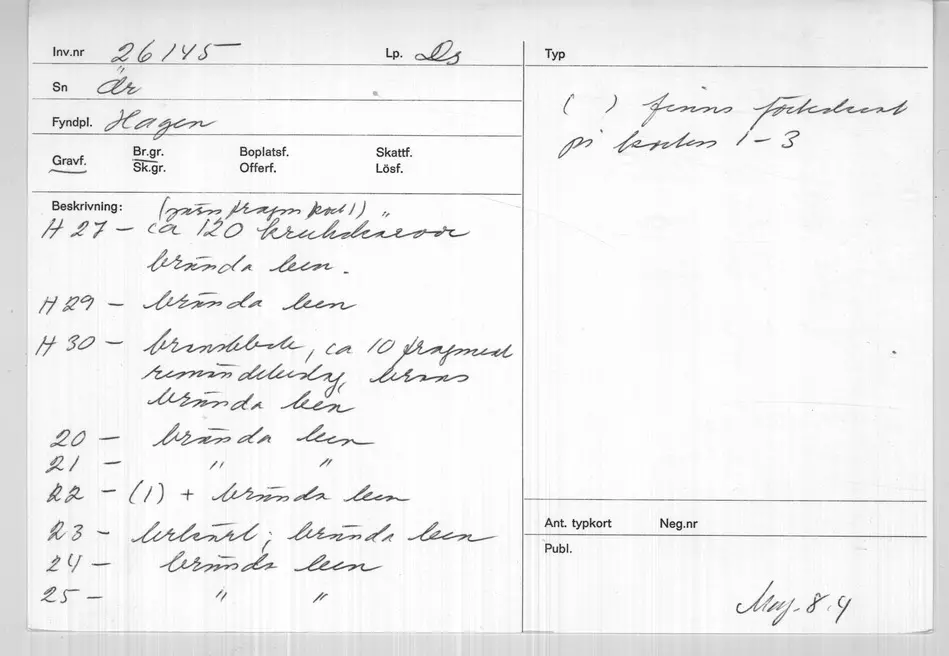 Inv.nr 26145 Lp. Ds
Sn Är
Fyndpl. Hagen
Gravf. Br.gr. Boplatsf. Skattf.
Sk.gr. Offerf. Lösf.
Beskrivning: (järn fragm kort 1)
H 27 – ca 120 krukskärvor
brända ben.
H 29 – brända ben
H 30 – , ca 10 fragment
remändebeslag, brons
brända ben
20 – brända ben
21 – " "
22 – (1) + brända ben
23 – lerkärl; brända ben
24 – brända ben
25 – " "
Typ
( ) finns
på korten 1–3
Ant. typkort Neg.nr
Publ.
Maj. 84